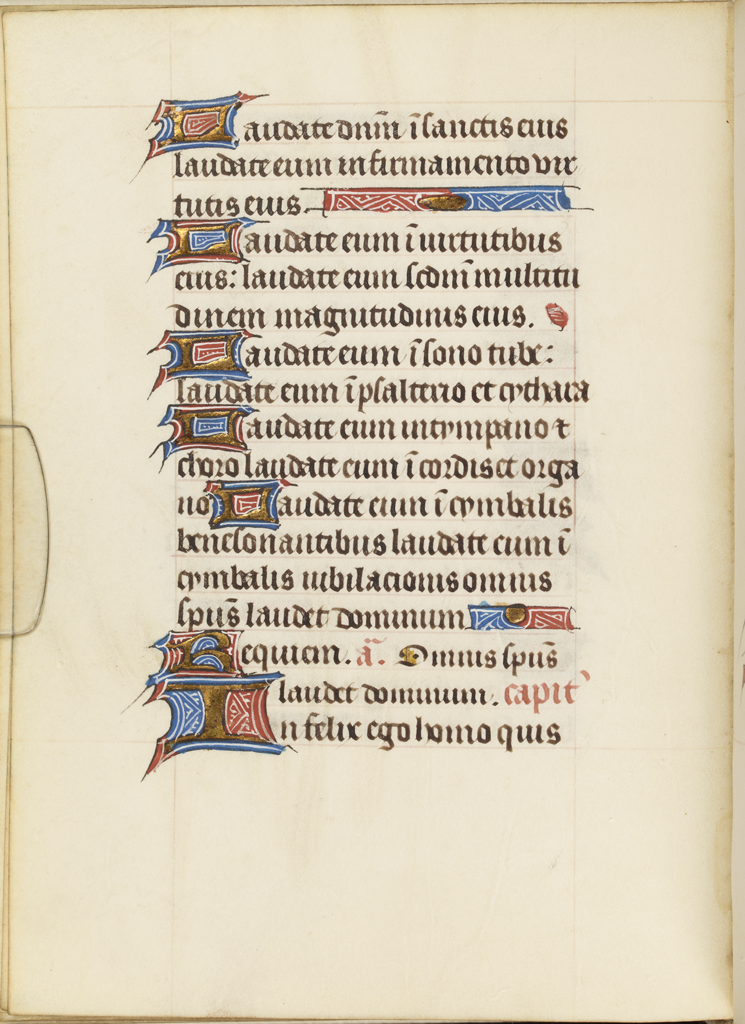 Laudate dnm̄ ī sanctis eius
laudate eum in firmamento vir
tutis eius.
Laudate eum ī uirtutibus
eius: laudate eum scdm̄ multitu
dinem magnitudinis eius.
Laudate eum ī sono tube:
laudate eum ī psalterio et cythara
Laudate eum in tympano ⁊
choro laudate eum ī cordis et orga
no Laudate eum ī cymbalis
benesonantibus laudate eum ī
cymbalis iubilacionis omnis
spūs laudet dominum
Requiem. ā. Omnis spūs
laudet dominum. capit᾽
In felix ego homo quis